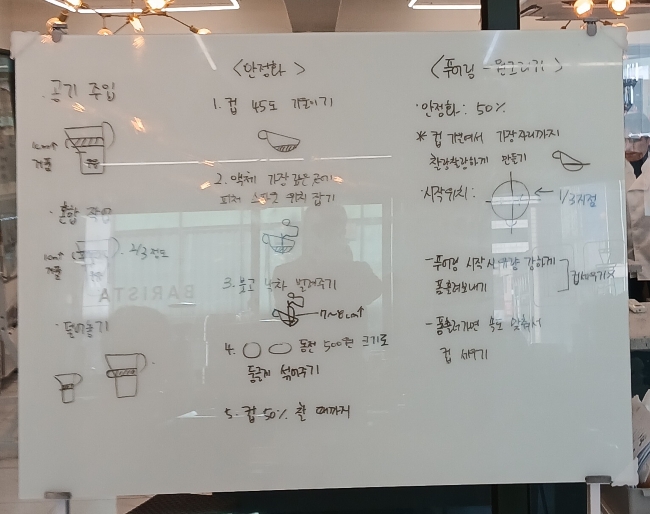 · 공기 주입
1cm↑
거품
우유
· 혼합 작업
1cm↑
거품
2/3 정도
· 덜어놓기
<안정화>
1. 컵 45도 기울이기
2. 액체 가장 깊은 곳에
피처 위치 잡기
3. 낙차 벌려주기
7~8cm↑
4. 동전 500원 크기로
둥글게 섞어주기
5. 컵 50% 찰 때까지
<푸어링 - 원그리기>
· 안정화 : 50%
* 컵 기울여서 가장자리까지
찰랑찰랑하게 만들기
· 시작위치 :
← 1/3지점
- 푸어링 시작 강하게
흘려보내기
- 속도 맞춰서
컵 세우기
BARISTA